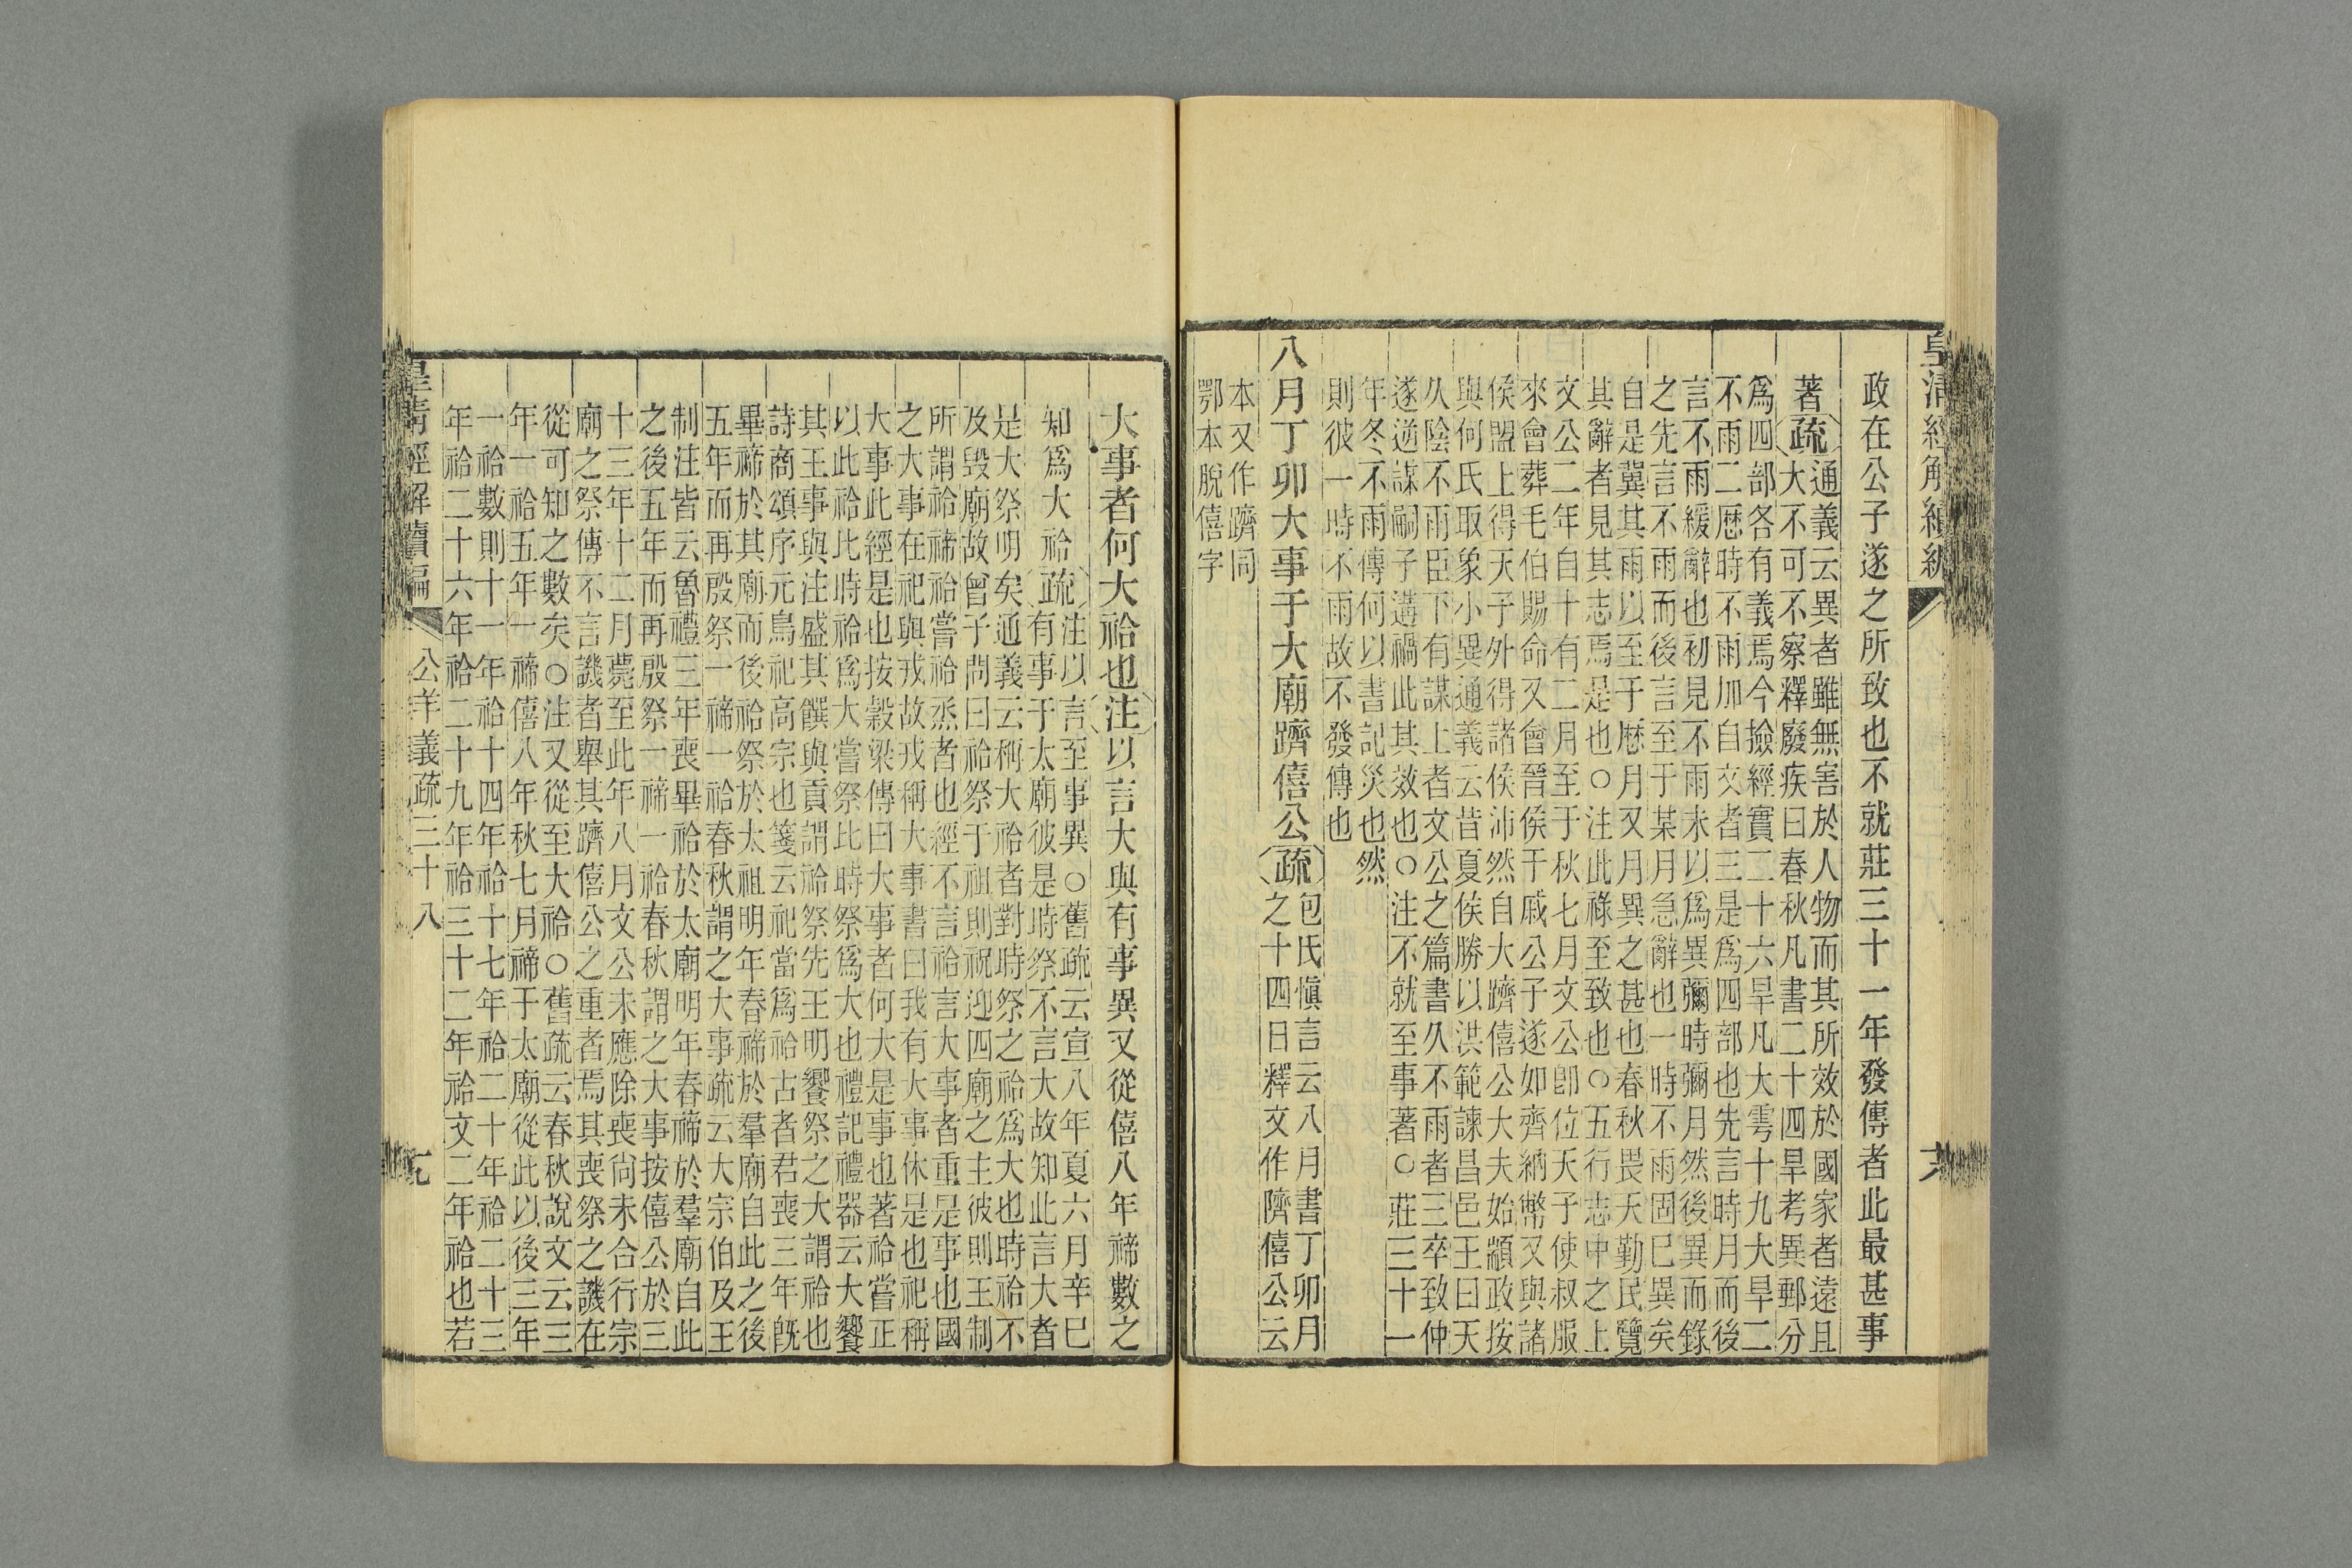 皇清經解續編
政在公子遂之所致也不就莊三十一年發傳者此最甚事
著疏
通義云異者雖無害於人物而其所效於國家者遠且
大不可不察釋廢疾曰春秋凡書二十四旱考異郵分
為四部各有義焉今撿經實二十六旱凡大雩十九大旱二
不雨二厯時不雨加自文者三是為四部也先言時月而後
言不雨緩辭也初見不雨未以為異彌時彌月然後異而錄
之先言不雨而後言至于某月急辭也一時不雨固已異矣
自是冀其雨以至于厯月又月異之甚也春秋畏天勤民覽
其辭者見其志焉是也○注此祿至致也○五行志中之上
文公二年自十有二月至于秋七月文公卽位天子使叔服
來會葬毛伯賜命又會晉侯于戚公子遂如齊納幣又與諸
侯盟上得天子外得諸侯沛然自大躋僖公大夫始顓政按
與何氏取象小異通義云昔夏侯勝以洪範諫昌邑王曰天
久陰不雨臣下有謀上者文公之篇書久不雨者三卒致仲
遂逆謀嗣子遘禍此其效也○注不就至事著○莊三十一
年冬不雨傳何以書記災也然
則彼一時不雨故不發傳也
八月丁卯大事于大廟躋僖公疏
包氏愼言云八月書丁卯月
之十四日釋文作隮僖公云
本又作躋同
鄂本脫僖字
大事者何大祫也注以言大與有事異又從僖八年禘數之
知為大祫疏
注以言至事異○舊疏云宣八年夏六月辛巳
有事于太廟彼是時祭不言大故知此言大者
是大祭明矣通義云稱大祫者對時祭之祫為大也時祫不
及毀廟故曾子問曰祫祭于祖則祝迎四廟之主彼則王制
所謂祫禘祫嘗祫烝者也經不言祫言大事者重是事也國
之大事在祀與戎故戎稱大事書曰我有大事休是也祀稱
大事此經是也按穀梁傳曰大事者何大是事也著祫嘗正
以此祫此時祫為大嘗祭此時祭為大也禮記禮器云大饗
其王事與注盛其饌與貢謂祫祭先王明饗祭之大謂祫也
詩商頌序元鳥祀高宗也箋云祀當為祫古者君喪三年旣
畢禘於其廟而後祫祭於太祖明年春禘於羣廟自此之後
五年而再殷祭一禘一祫春秋謂之大事疏云大宗伯及王
制注皆云魯禮三年喪畢祫於太廟明年春禘於羣廟自此
之後五年而再殷祭一禘一祫春秋謂之大事按僖公於三
十三年十二月薨至此年八月文公未應除喪尚未合行宗
廟之祭傳不言譏者舉其躋僖公之重者焉其喪祭之譏在
從可知之數矣○注又從至大祫○舊疏云春秋說文云三
年一祫五年一禘僖八年秋七月禘于太廟從此以後三年
一祫數則十一年祫十四年祫十七年祫二十年祫二十三
年祫二十六年祫二十九年祫三十二年祫文二年祫也若
皇清經解續編
公羊義疏三十八